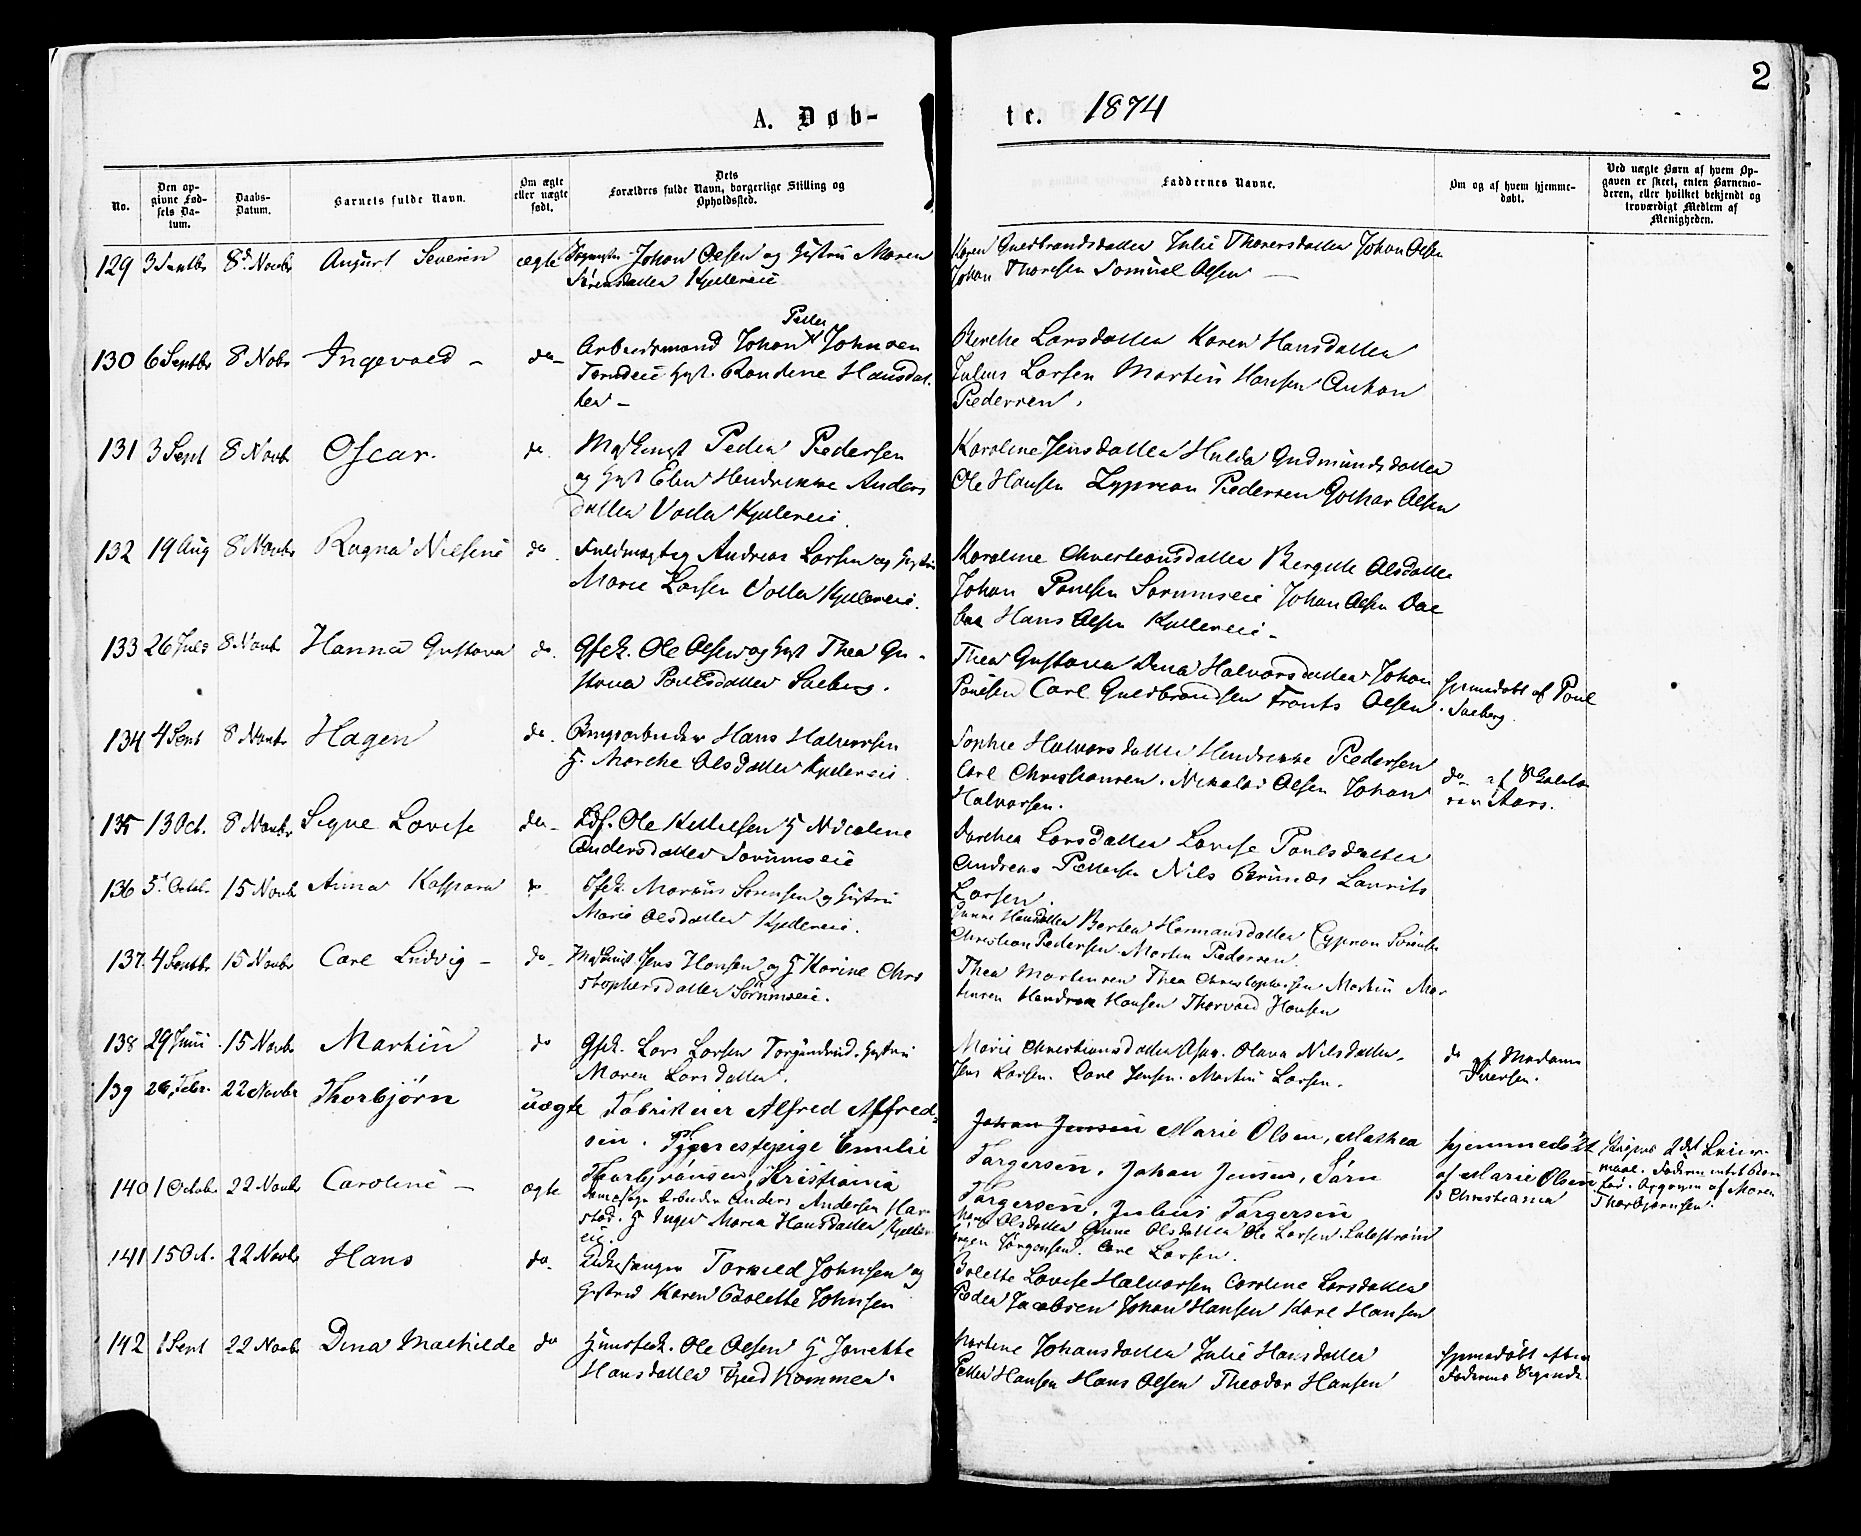 2
A. Døb-
te. 1874
No.
Den op-
givne Fød-
sels Da-
tum.
Daabs-
Datum.
Barnets fulde Navn.
Om ægte
eller uægte
født.
Dets
Forældres fulde Navn, borgerlige Stilling og
Opholdssted.
Faddernes Navne.
Om og af hvem hjemme-
døbt.
Ved uægte Børn af hvem Op-
gaven er skeet, enten Barnemo-
deren, eller hvilket bekjendt og
troværdigt Medlem af
Menigheden.
129 3 Septbr 8d Novbr August Severin ægte Johan Olsen og Hustru Maren
Sørensdatter Kjellereie
Karen Guldbrandsdatter Julie Thoresdatter Johan Olsen
Johan Thoresen Samuel Olsen —
130 6 Septbr 8 Nobr Ingevald - do- Arbeidsmand Johan Peder Johnsen
Hust. Randine Hansdat
ter -
Berthe Larsdatter Karen Hansdatter
Julius Larsen Martin Hansen Anton
Pedersen.
131 3 Sept 8 Novbr Oscar. do. Peder Pedersen
og Hust Elen Hendrikke Anders
datter Volla Kjellereie.
Karoline Jensdatter Hulda Gudmundsdatter
Ole Hansen Zyprian Pedersen Gothar Olsen
132 19 Aug 8 Novbr Ragna Nilsine do. Fuldmægtig Andreas Larsen og Hustru
Marie Larsen Volla Kjellereie.
Karoline Christiansdatter Bergitte Olsdatter
Johan Paulsen Sørumseie Johan Olsen
Hans Olsen Kjellereie -
133 26 Juli 8 Novb Hanna Gustava do. Gfek. Ole Olsen og Hust Thea Gu-
stava Paulsdatter Saeberg.
Thea Gustava Dina Halvorsdatter Johan
Paulsen Carl Guldbrandsen Frants Olsen
Hjemdøbt af Poul
Saeberg.
134 4 Sept 8 Novbr Hagen do. Brugsarbeider Hans Halvorsen
H. Marthe Olsdatter Kjellereie.
Sophie Halvorsdatter Hendrikke Pedersen
Carl Christiansen. Nikolai Olsen Johan
Halvorsen.
do af
Aars.
135 13 Oct. 8 Novbr Signe Lovise do- Ole Kittilsen H Nicoline
Andersdatter Sørumseie
Dorthea Larsdatter Lovise Paulsdatter
Andreas Pettersen Nils Laurits
Larsen.
136 5t Octobr 15 Novbr Anna Kaspara do Gfek. Marius Sørensen og Hustru
Marie Olsdatter Kjellereie.
Hansdatter Berthe Hermansdatter Cyprian Sørensen
Christian Pedersen. Martin Pedersen.
137. 4 Septbr 15 Novbr Carl Ludvig - do- Jens Hansen og H Karine Chri
stophersdatter Sørumseie.
Thea Martinsen Thea Christophersen Martin Mar
tinsen Hansen Thorvald Hansen
138 29 Juni 15 Novbr Martin do Gfek. Lars Larsen Hustru
Maren Larsdatter.
Marie Christiansdatter Olava Nilsdatter.
Jens Larsen. Carl Jensen. Martin Larsen.
do af Madame
Iversen.
139 26 Febr. 22 Novbr Thorbjørn uægte Fabrikeier Alfred Alfred-
sen. Emilie
Thorbjørnsen, Kristiania
Johan Jensen Marie Olsen, Mathea
Torgersen, Johan Jensen, Sørn
Torgersen, Julius Torgersen
hjemmedøbt
af Marie Olsen
i Christiania
2det Leier-
maal. Faderen
Opgaven af Maren
Thorbjørnsen.
140 1 Octobr 22 Novbr Caroline - ægte Arbeider Anders Andersen Har
stad. H Inger Maria Hansdatter, Kjeller
eie.
Olsdatter Anne Olsdatter Ole Larsen. Lillestrøm
Jørgen Jørgensen. Carl Larsen.
141 15 Oct. 22 Novbr Hans do. Kirkesanger Torkild Johnsen og
Hustru Karen Bolette Johnsen
Bolette Lovise Halvorsen Caroline Larsdatter
Peder Jacobsen Johan Hansen Karl Hansen
142 1 Sept 22 Novbr Dina Mathilde do Ole Olsen H Janette
Hansdatter
Martine Johansdatter Julie Hansdatter
Petter Hansen Hans Olsen Theodor Hansen
Hjemdøbt efter
Faderens Sigende.